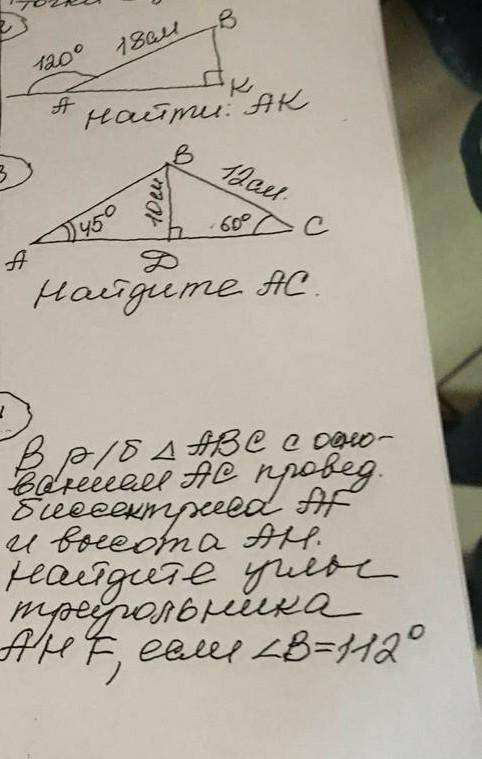 2
B
18см
120°
A
K
Найти: AK
3
B
12см.
10см
45°
60°
C
A
D
Найдите AC.
В р/б △ ABC с осно-
ванием AC провед.
биссектриса AF
и высота AH.
Найдите углы
треугольника
AHF, если ∠B=112°